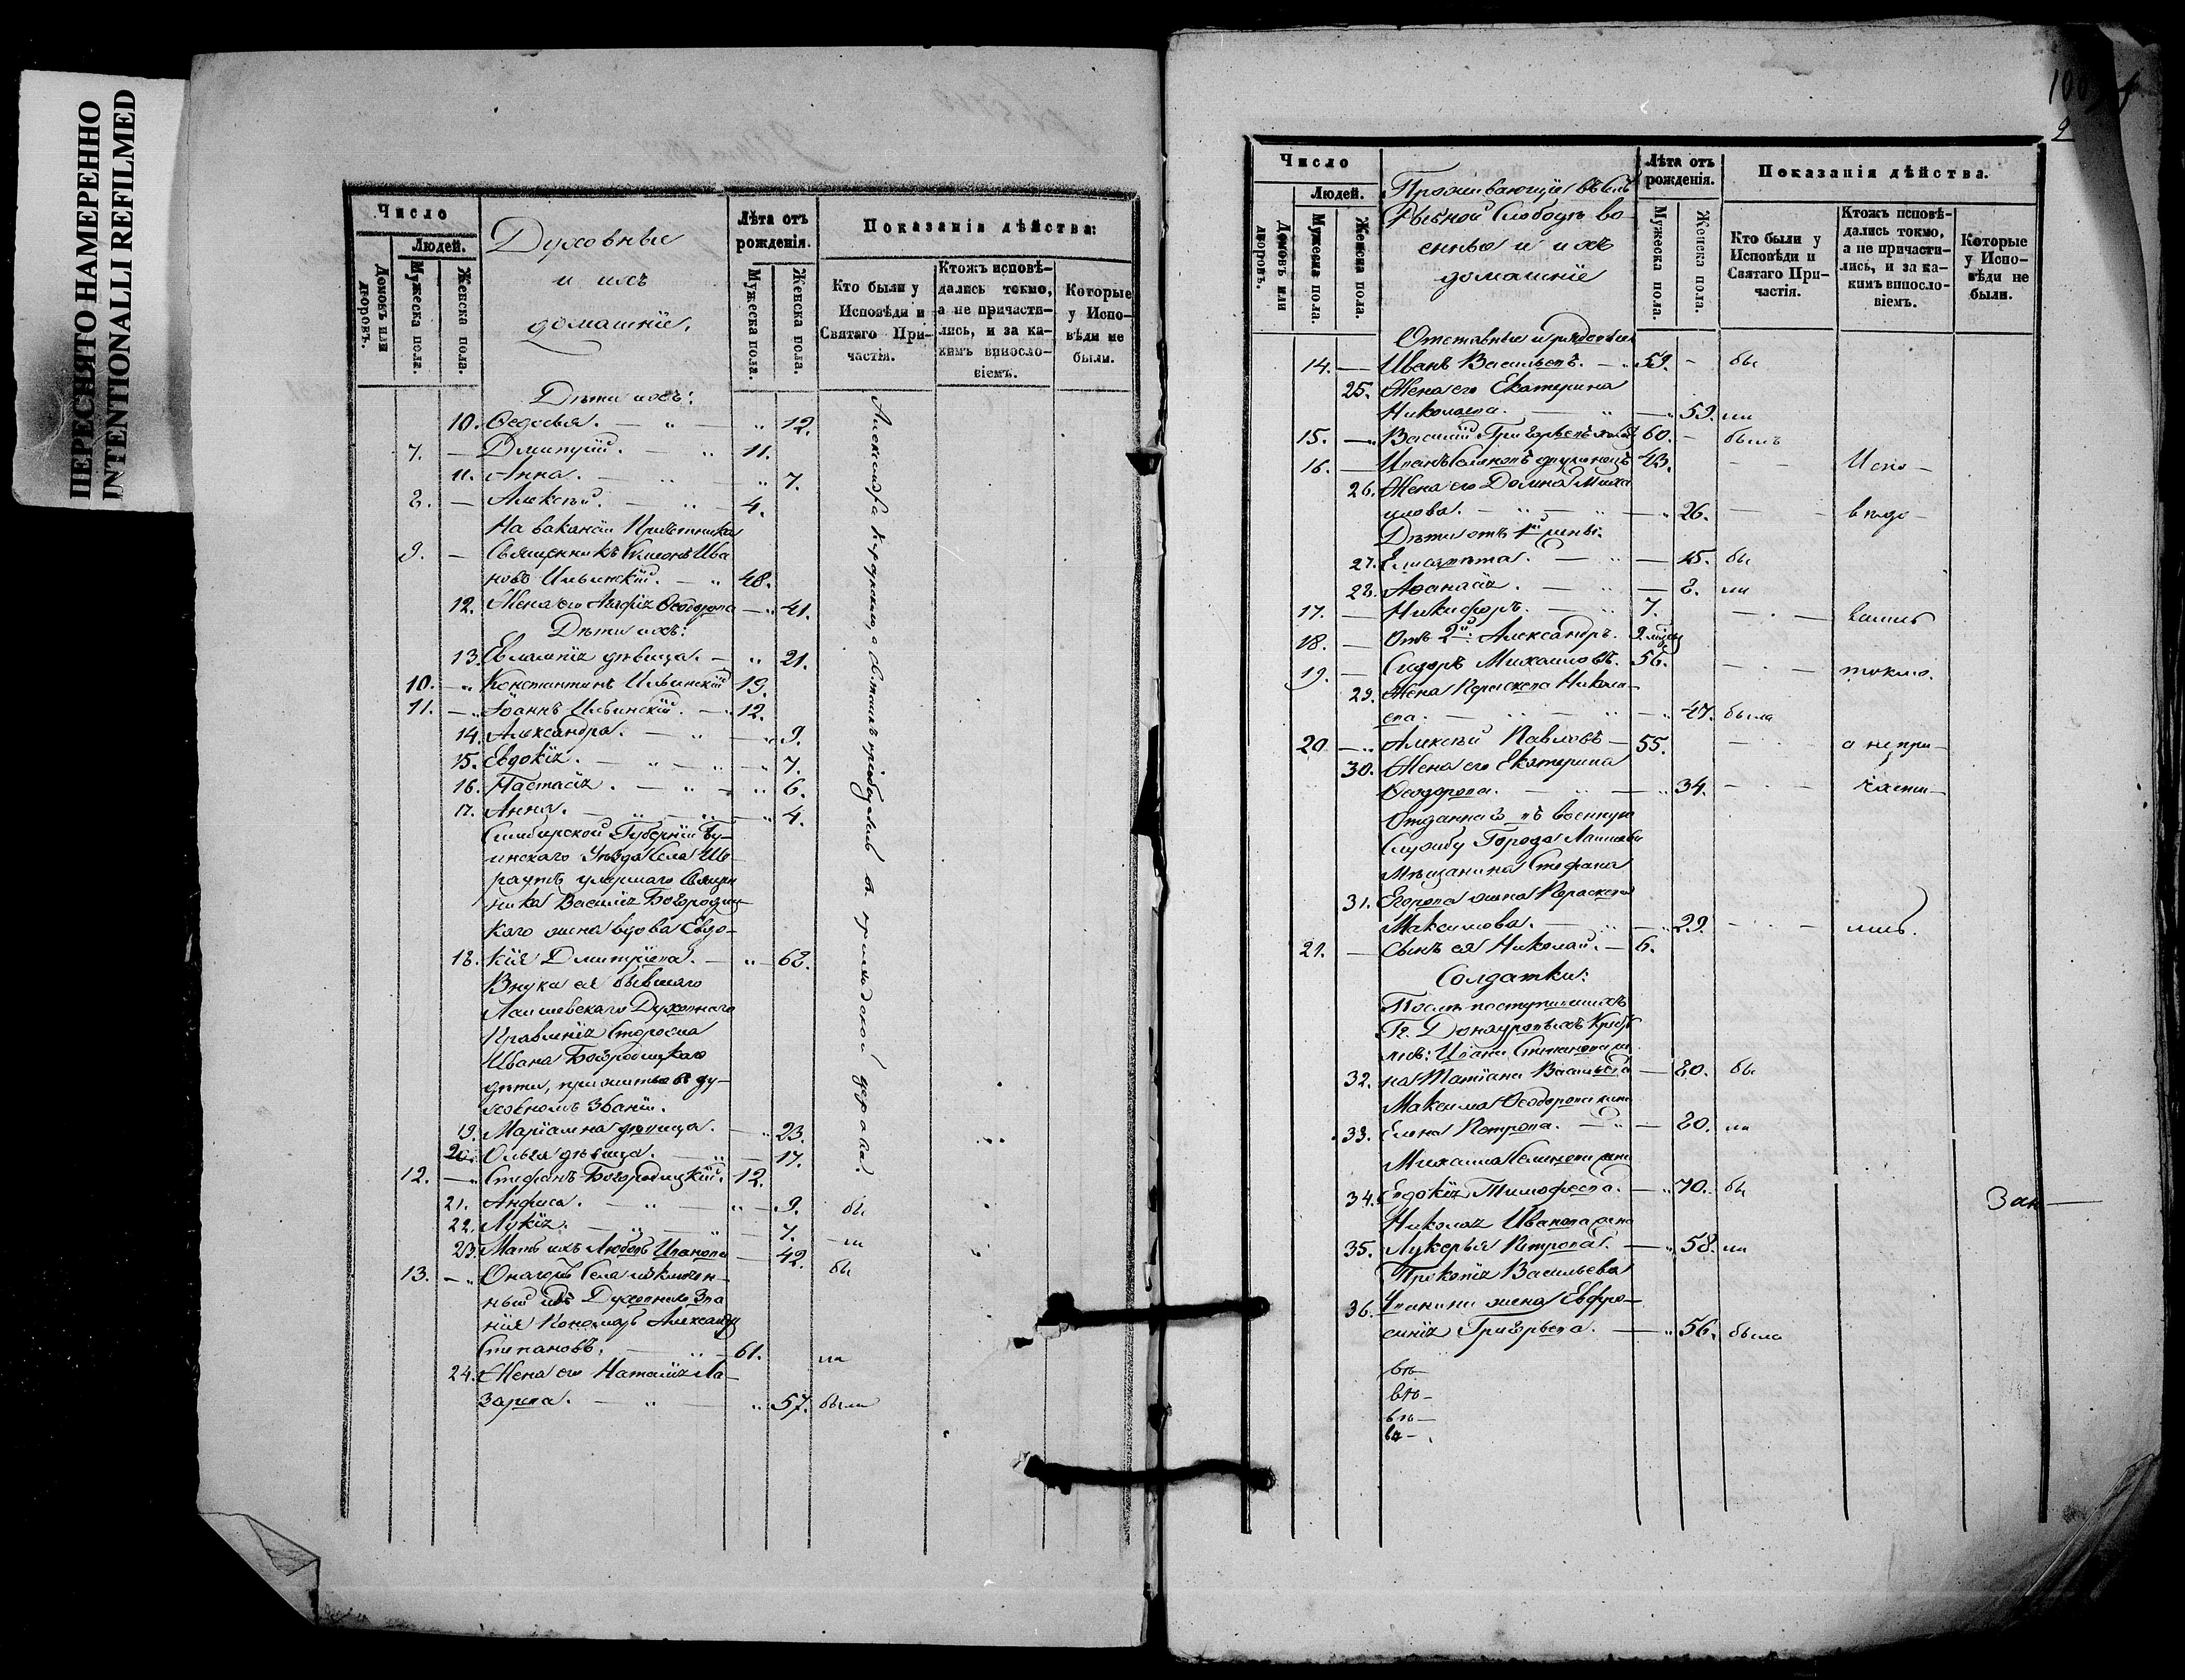 ПЕРЕСНЯТО НАМЕРЕННО
INTENTIONALLI REFILMED
Число
Людей.
Домовъ или дворовъ.
Мужеска пола.
Женска пола.
Духовные
и ихъ
домашніе.
Лѣта отъ рожденія.
Мужеска пола.
Женска пола.
Показанія дѣйства:
Кто были у Исповѣди и Святаго Причастія.
Ктожъ исповѣдались токмо, а не причастились, и за какимъ винословіемъ.
Которые у Исповѣди не были.
Дѣти ихъ:
10. Ѳедосья. 12.
7. Димитрій. 11.
11. Анна. 7.
8. Алексѣй. 4.
На вакансіи Причетника
9. Священникъ Симеонъ Ива
новъ Ильинскій. 48.
12. Жена его Агафія Ѳеодорова 41.
Дѣти ихъ:
13. Евлампія дѣвица. 21.
10. Константинъ Ильинскій 19.
11. Іоаннъ Ильинскій. 12.
14. Александра. 9.
15. Евдокія. 7.
16. Настасія. 6.
17. Анна. 4.
Симбирской Губерніи Бу-
инскаго Уѣзда Села
умершаго Священ
ника Василія Богородиц-
каго жена вдова Евдо-
18. кія Димитріева. 68.
Внука ея бывшаго
Лаишевскаго Духовнаго
Правленія Сторожа
Ивана Богородицкаго
дѣти, прижитые въ ду-
ховномъ званіи.
19. Маріамна дѣвица. 23.
20. Ольга дѣвица. 17.
12. Стефанъ Богородицкій. 12.
21. Анфиса. 9. бы
22. Лукія. 7. ли
23. Мать ихъ Любовь Иванова 42. бы
13. Онагожъ Села исключен-
ный изъ Духовнаго Зва
нія Пономарь Александр
Степановъ. 61. ли
24. Жена его Наталія Ла-
зарева. 57. были
100
2
Число
Людей.
Домовъ или дворовъ.
Мужеска пола.
Женска пола.
Проживающіе въ Селѣ
Рыбной Слободѣ во
енные и ихъ
домашніе
Лѣта отъ рожденія.
Мужеска пола.
Женска пола.
Показанія дѣйства.
Кто были у Исповѣди и Святаго Причастія.
Ктожъ исповѣдались токмо, а не причастились, и за какимъ винословіемъ.
Которые у Исповѣди не были.
Отставные и рядовые
14. Иванъ Васильевъ. 59. бы
25. Жена его Екатерина
Николаева. 59. ли
15. Василій Григорьевъ 60. былъ
16. Иванъ 43. Испо-
26. Жена его Домна Миха
илова. 26. вѣдо-
Дѣти отъ 1й жены.
27. Елисавета. 15. бы
28. Аѳанасія. 8. ли
17. Никифоръ. 7. вались
18. Отъ 2й Александръ. 9. мѣсяц
19. Сидоръ Михайловъ. 56. токмо.
29. Жена Параскева Никола-
ева. 47. была
20 Алексѣй Павловъ 55. а непри-
30. Жена его Екатерина
Ѳеодорова. 34. части-
Отданнаго въ военную
Службу Города Лаишева
Мѣщанина Стефана
31. Егорова жена Параскева
Максимова. 29. лись.
21. Сынъ ея Николай. 6.
Солдатки:
Послѣ поступившихъ
32. на Татіана Васильева 80. бы
Максима Ѳеодорова жена
33. Елена Петрова. 80. ли
Михаила жена
34. Евдокія Тимофеева. 70. бы
Зан
Николая Иванова жена
35. Лукерья Петрова. 58. ли
Прокопія Васильева
36. жена Евфро-
синія Григорьева. 56. была